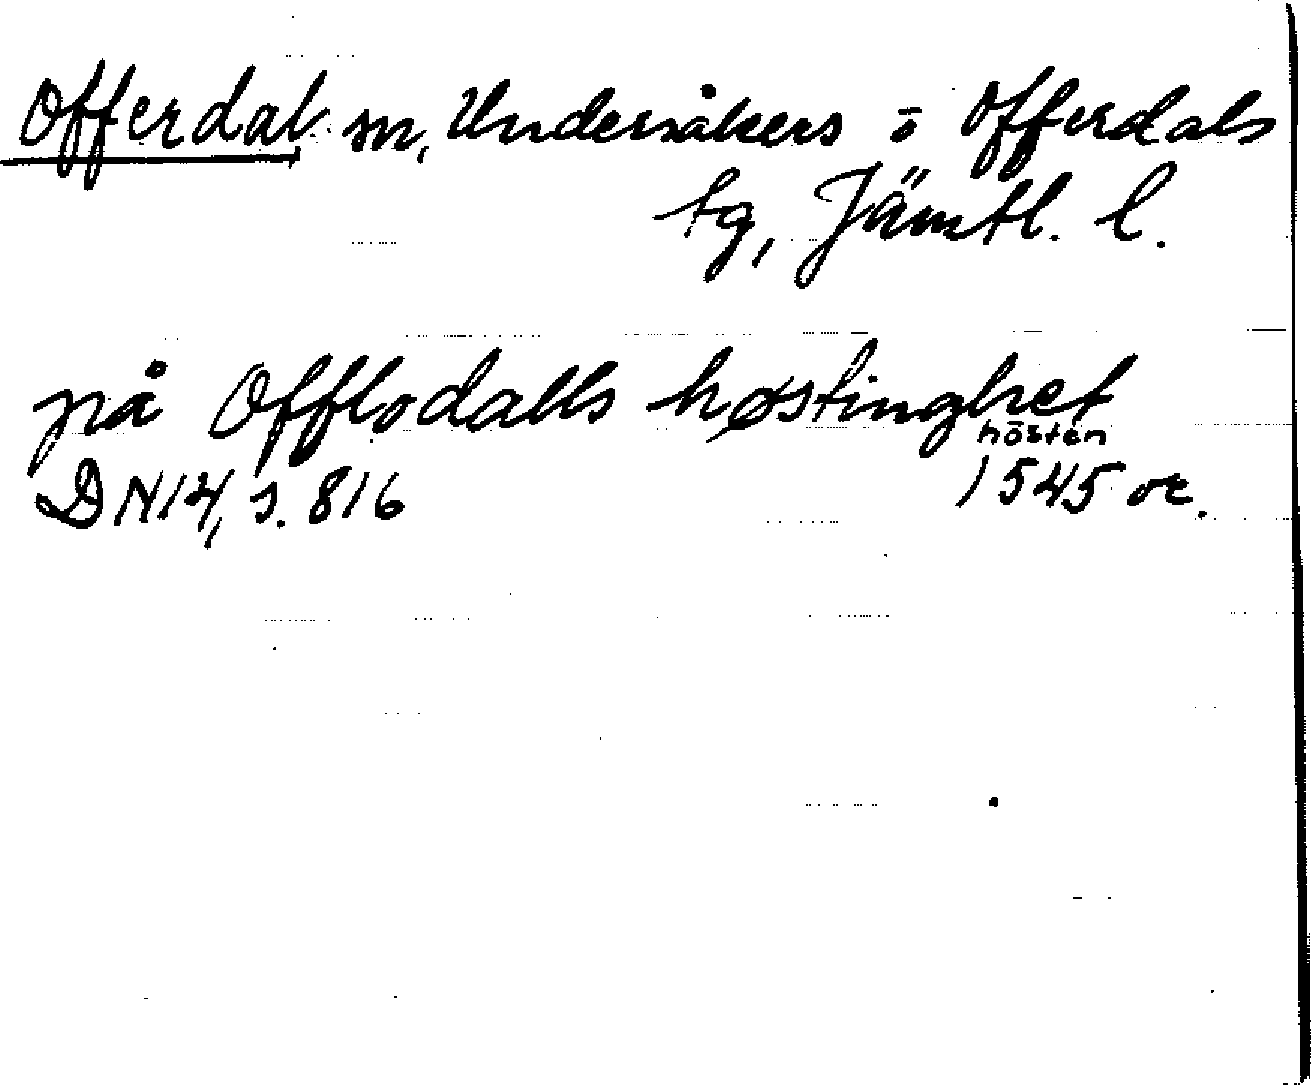 Offerdal sn, Undersåkers o Offerdals
tg, Jämtl. l.
på Offlodalls høstinghet
hösten
DN14, s. 816 1545 or.